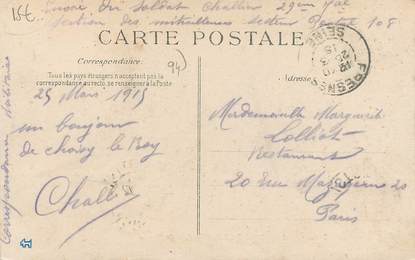 15€
Envoi du Soldat Challier 29em
section des mitrailleuses Secteur Postal 108
CARTE POSTALE
Correspondance
Tous les pays étrangers n'acceptent pas la
correspondance au recto, se renseigner à la Poste
Adresse
FRESNES
SEINE
94)
25 Mars 1915
un bonjour
de choisy le Roy
Challier
Mademoiselle Marguerite
Lolliot
Restaurant
20 Rue
Paris
Correspondance Militaire